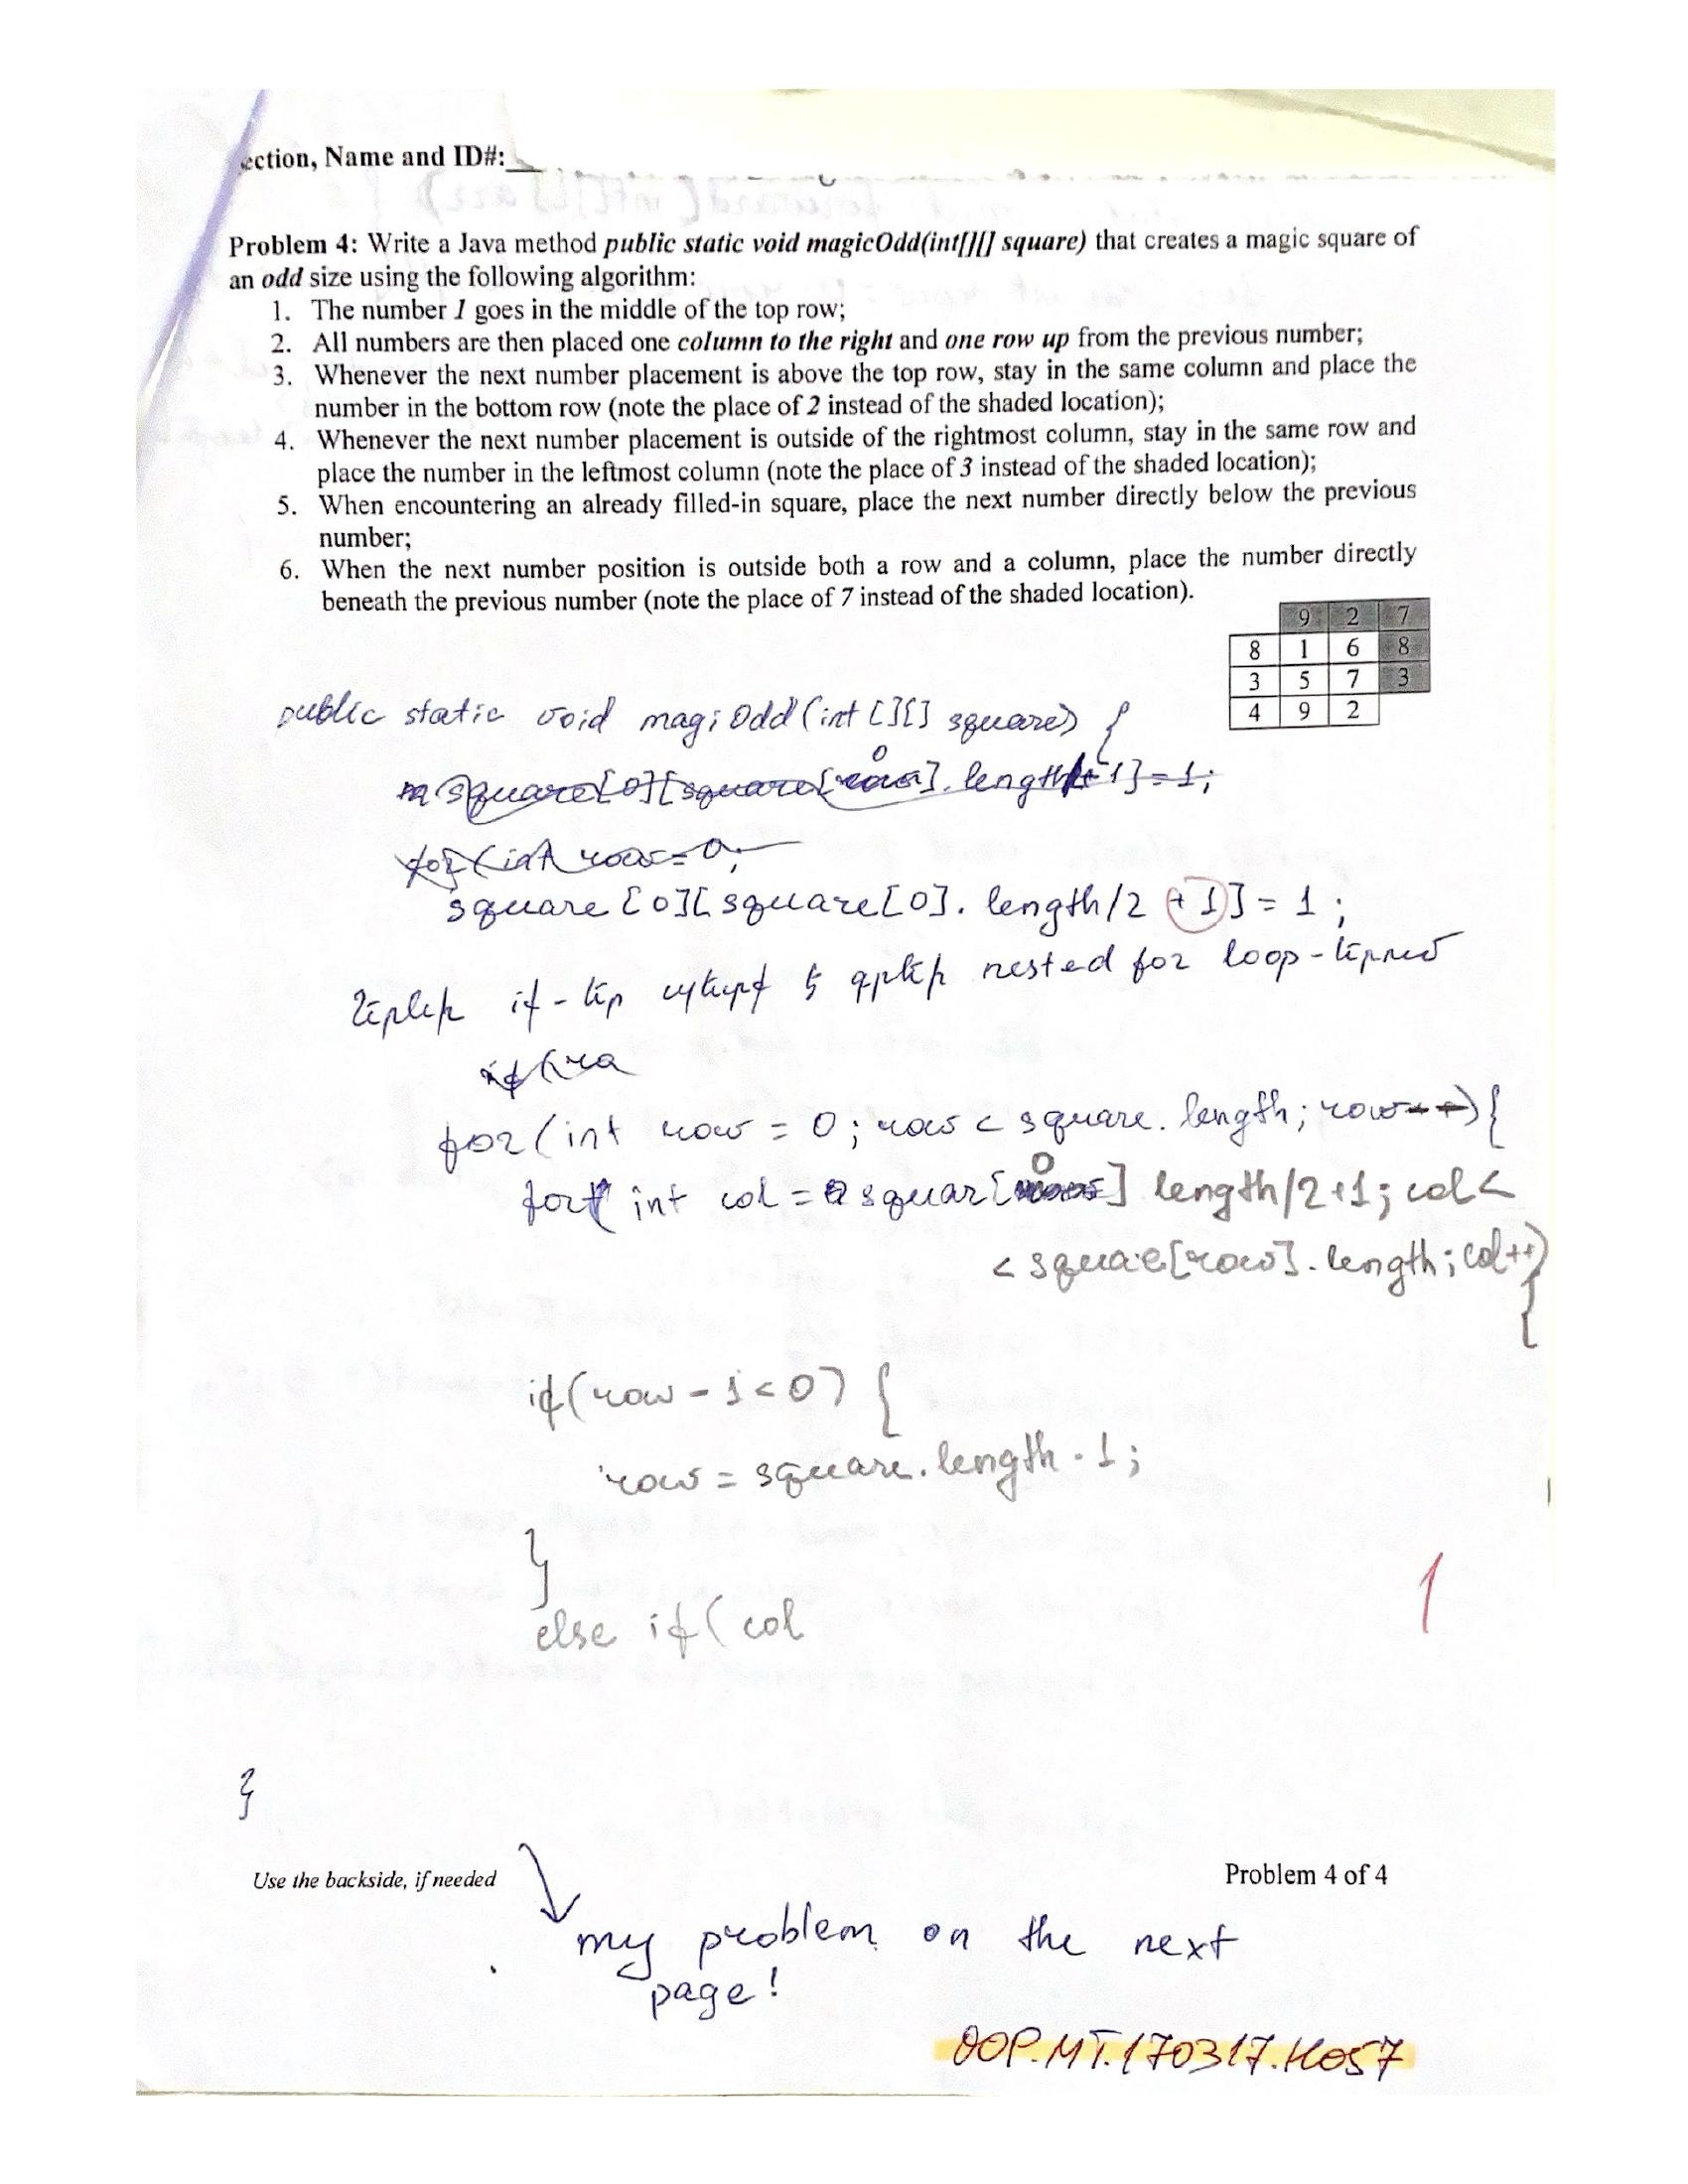 ection, Name and ID#:
Problem 4: Write a Java method public static void magicOdd(int[][] square) that creates a magic square of
an odd size using the following algorithm:
1. The number 1 goes in the middle of the top row;
2. All numbers are then placed one column to the right and one row up from the previous number;
3. Whenever the next number placement is above the top row, stay in the same column and place the
number in the bottom row (note the place of 2 instead of the shaded location);
4. Whenever the next number placement is outside of the rightmost column, stay in the same row and
place the number in the leftmost column (note the place of 3 instead of the shaded location);
5. When encountering an already filled-in square, place the next number directly below the previous
number;
6. When the next number position is outside both a row and a column, place the number directly
beneath the previous number (note the place of 7 instead of the shaded location).
9 2 7
8 1 6 8
3 5 7 3
4 9 2
public static void magiOdd(int [][] square) {
for(int row=0;
square[0][square[0].length/2 +1] = 1;
if- nested for loop-
if(ra
for(int row = 0; row < square.length; row++){
for( int col = squar[0] length/2+1; col <
< square[row].length; col++)
{
if(row - 1 < 0) {
row = square.length - 1;
}
else if( col
1
}
Use the backside, if needed
Problem 4 of 4
my problem on the next
page!
OOP.MT.170317.H057